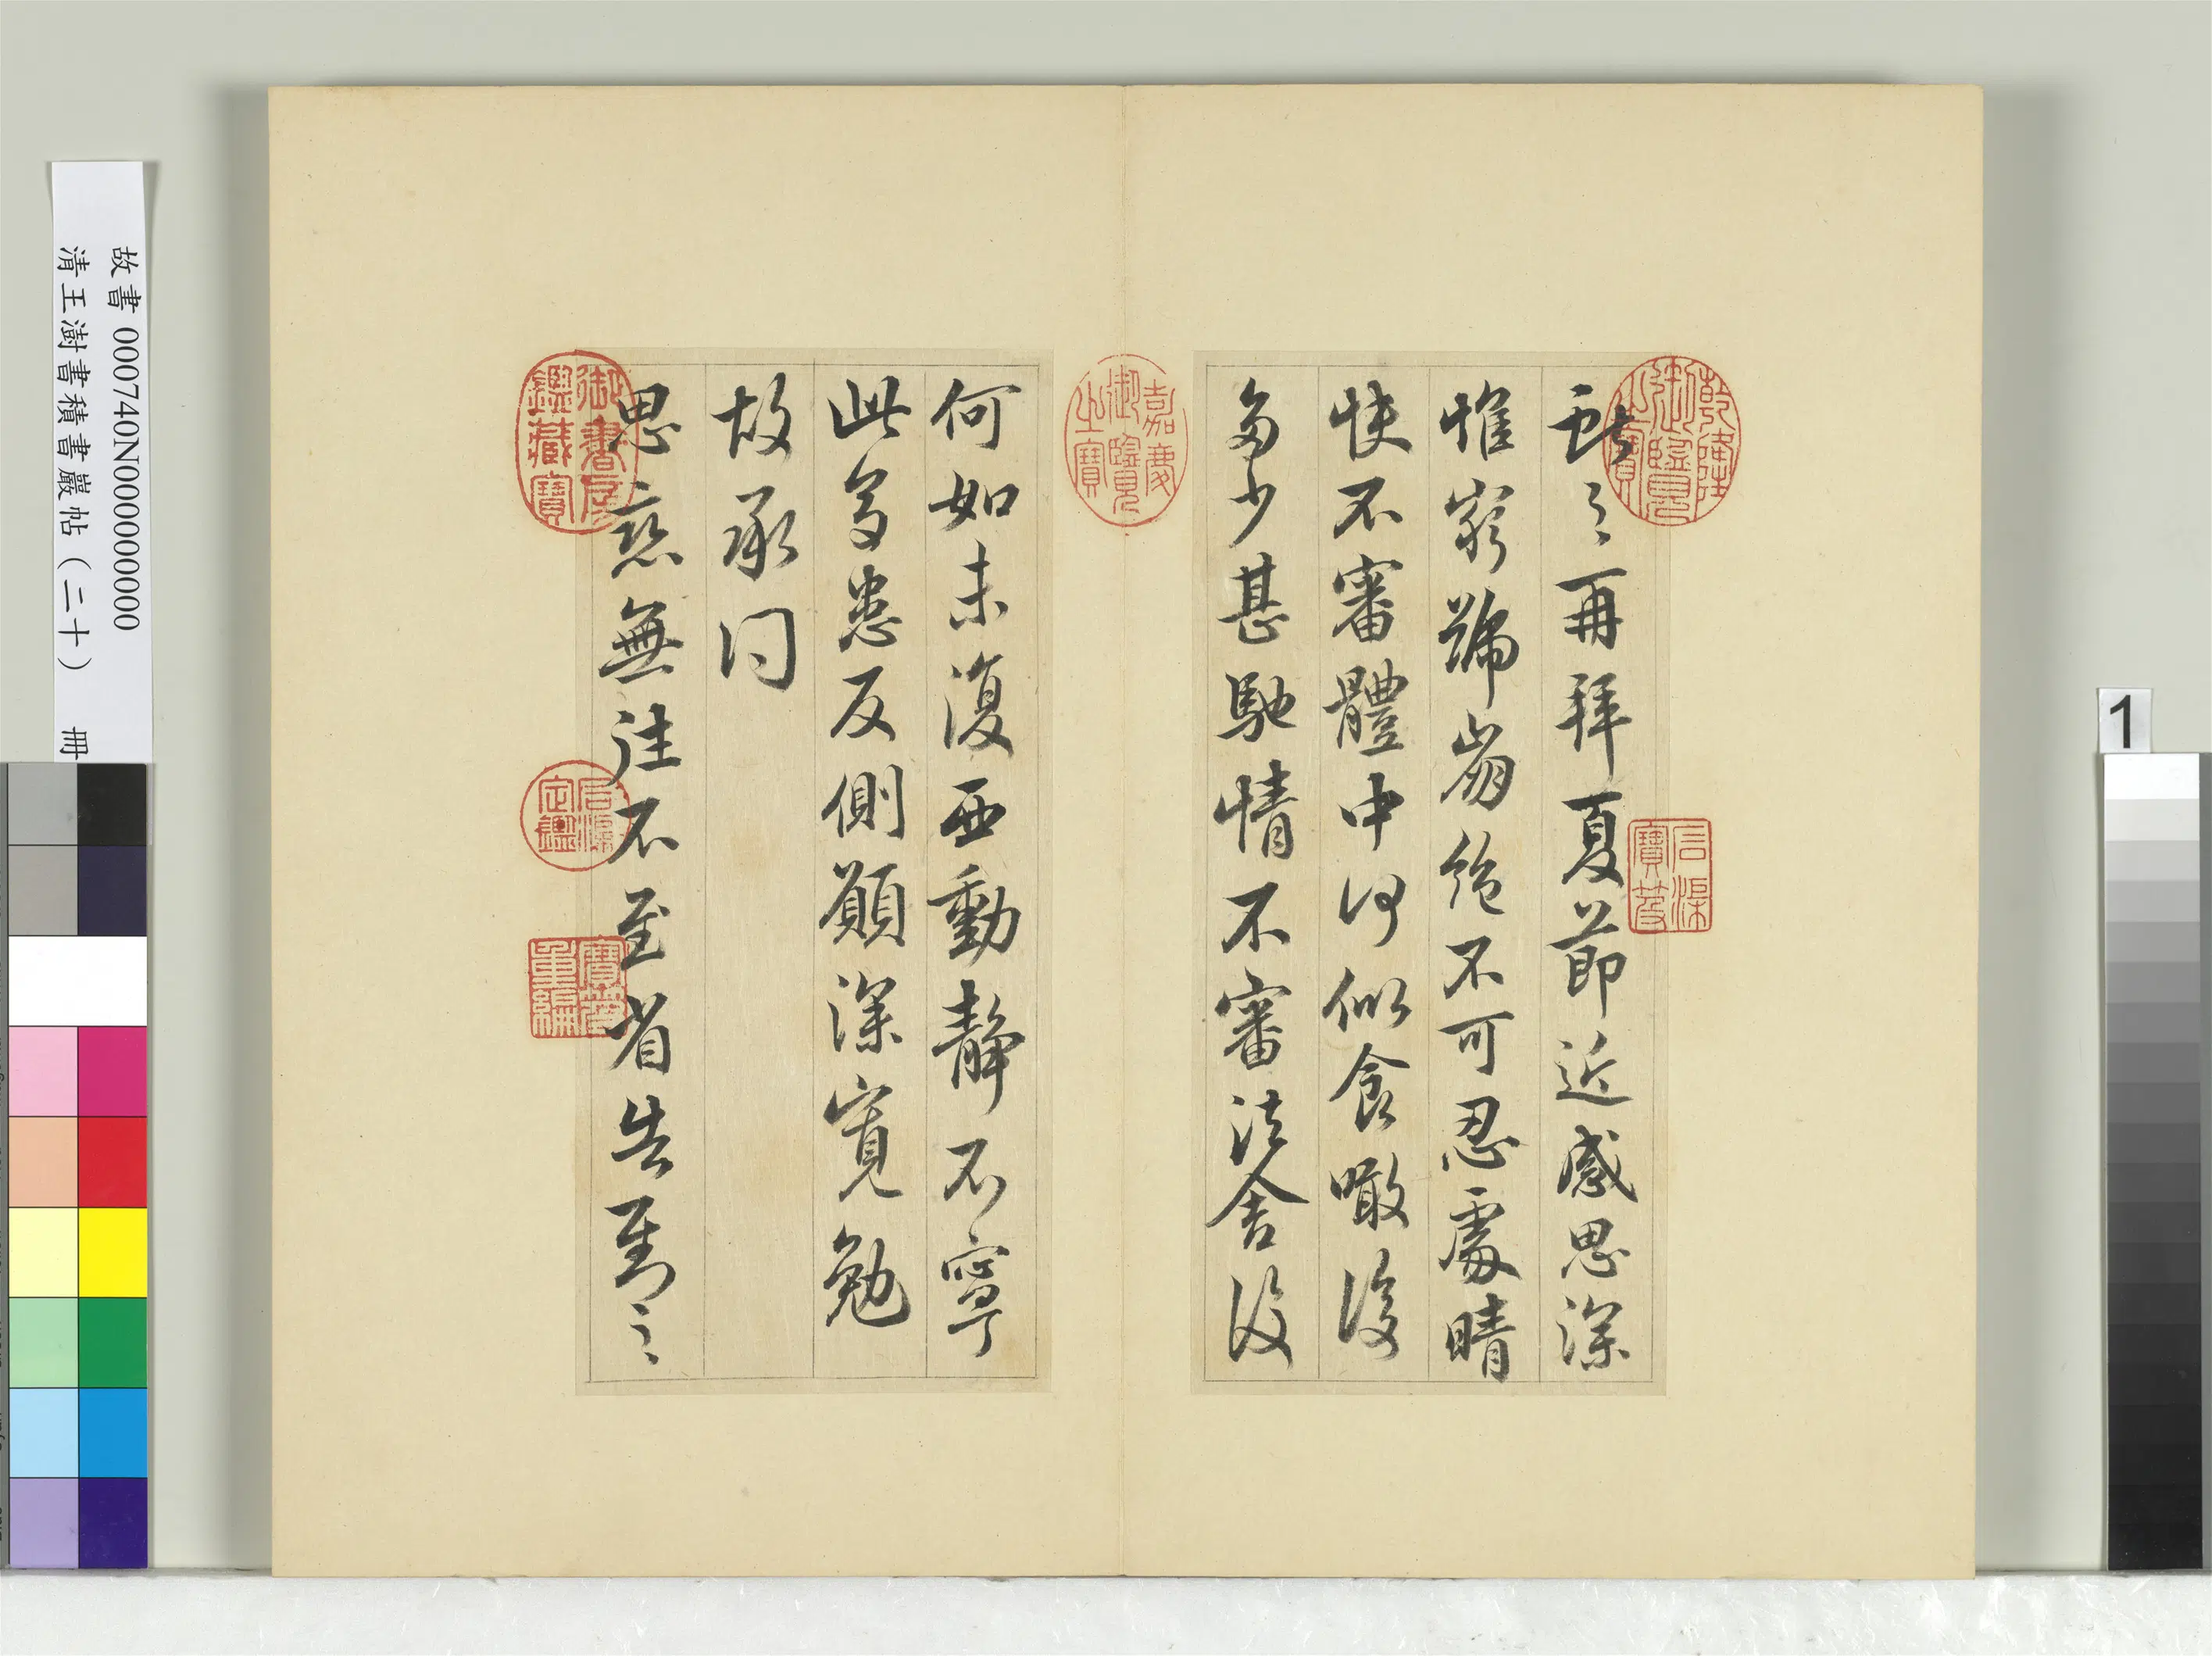 之再拜夏節近感思深
惟窮號崩絕不可忍處晴
快不審體中何似食噉復
多少甚馳情不審法舍復
何如未復動靜不寧
此多患反側願深寬勉
故承問
思戀無往不至省告對之
乾隆御覽之寶
石渠寶笈
嘉慶御覽之寶
御書房鑑藏寶
石渠定鑑
寶笈重編
故書 000740N000000000
清王澍書積書巖帖（二十） 冊
1